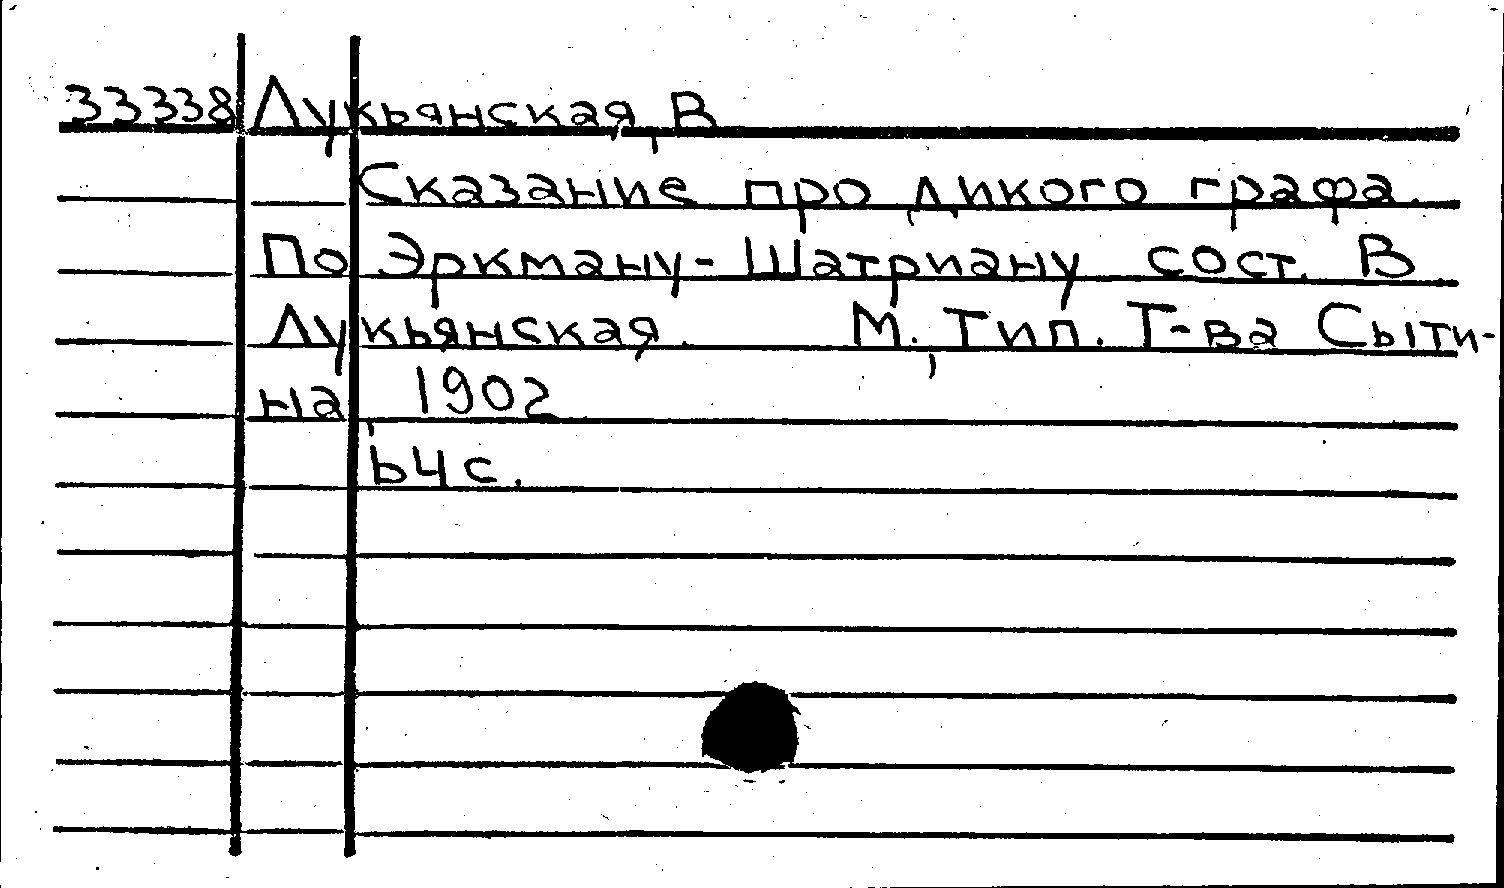 33338 Лукьянская, В
Сказание про дикого графа.
По Эркману-Шатриану сост. В
Лукьянская. М., Тип. Т-ва Сыти-
на 1902
64с.